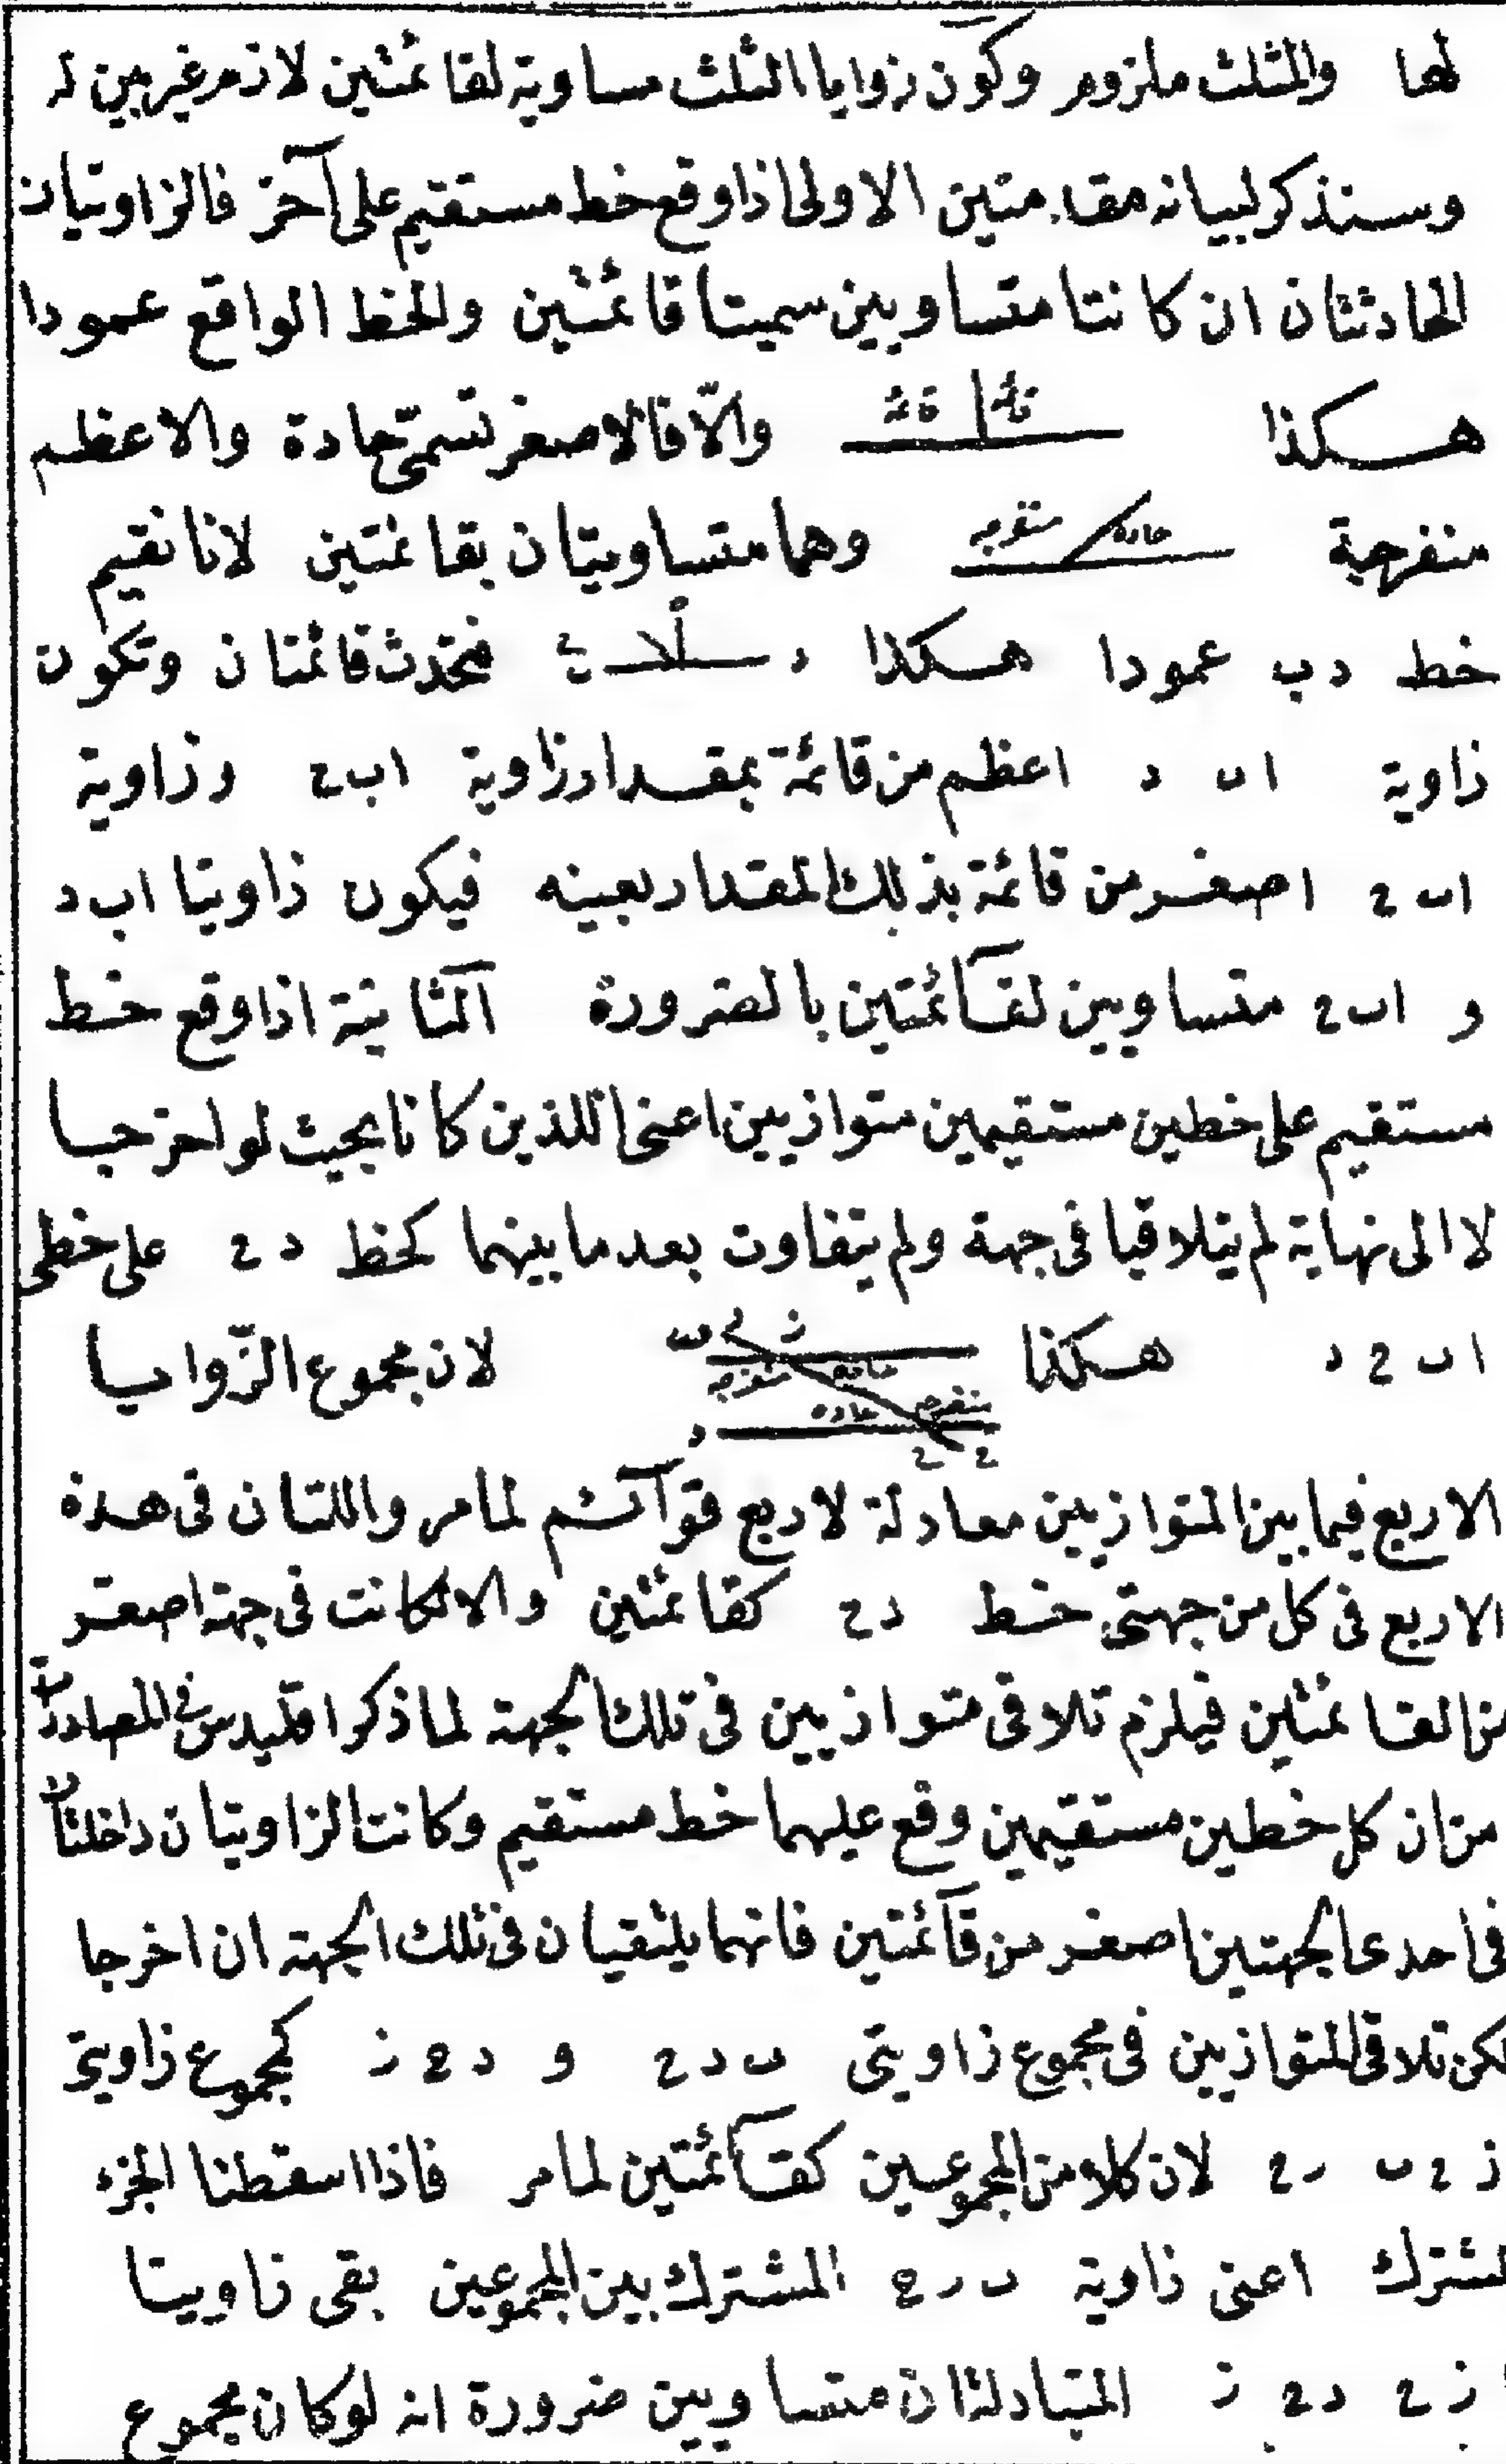 لها والمثلث ملزوم وكون زوايا الثلث مساوية لقائمتين لازم غير بين له
وسنذكر لبيانه مقدمتين الاولى اذا وقع خط مستقيم على آخر فالزاويتان
الحادثتان ان كانتا متساويين سميتا قائمتين والخط الواقع عمودا
هكذا قائمه قائمه والّا فالاصغر تسمّى حادة والاعظم
منفرجية حاده منفرجه وهما متساويتان بقائمتين لانا نقيم
خط دب عمودا هكذا د ح فتحدث قائمتان وتكون
زاوية ا ب د اعظم من قائمة بمقدار زاوية ا ب ح وزاوية
ا ب ح اصغر من قائمة بذلك المقدار بعينه فيكون زاويتا ا ب د
و ا ب ح متساويين لقائمتين بالضرورة الثانية اذا وقع خط
مستقيم على خطين مستقيمين متوازيين اعنى اللذين كانا بحيث لو اخرجا
لا الى نهاية لم يتلاقيا فى جهة ولم يتفاوت بعد ما بينهما كخط د ح على خطى
ا ب ح د هكذا ب ز حاده منفرجه منفرجه حاده د ح لان مجموع الزّوايا
الاربع فيما بين المتوازيين معادلة لاربع قوآئم لما مر واللتان فى هذه
الاربع فى كل من جهتى خط د ح كقائمتين والا لكانت فى جهة اصغر
من القائمتين فيلزم تلاقى متوازيين فى تلك الجهة لما ذكر اقليدس فى المصادرات
من ان كل خطين مستقيمين وقع عليهما خط مستقيم وكانت الزاويتان داخلتان
فى احدى الجهتين اصغر من قآئمتين فانهما يلتقيان فى تلك الجهة ان اخرجا
لكن تلاقى المتوازيين فى مجموع زاويتى ب د ح و د ح ز كمجموع زاويتى
ز ح ب ر ح لان كلا من المجموعين كقآئمتين لما مر فاذا اسقطنا الجزء
المشترك اعنى زاوية ب ر ح المشترك بين المجموعين بقى زاويتا
ا ز ح د ح ز المتبادلتان متساويين ضرورة انه لو كان مجموع